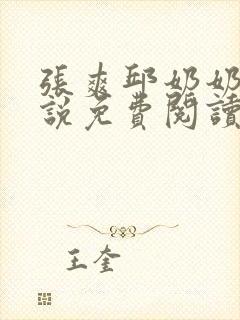 張爽邱奶奶
說免費閱讀
王奎